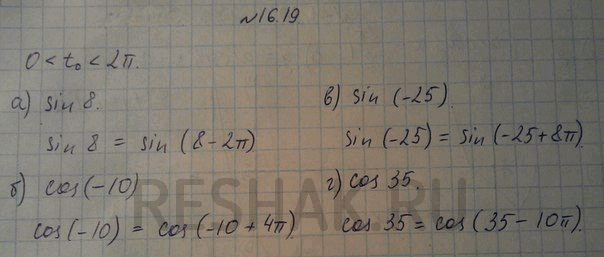 №16.19.
0 < t₀ < 2π.
а) sin 8.
sin 8 = sin (8 - 2π)
б) cos(-10)
cos(-10) = cos(-10 + 4π).
в) sin (-25).
sin (-25) = sin(-25+8π).
г) cos 35.
cos 35 = cos(35 - 10π).
RESHAK.RU